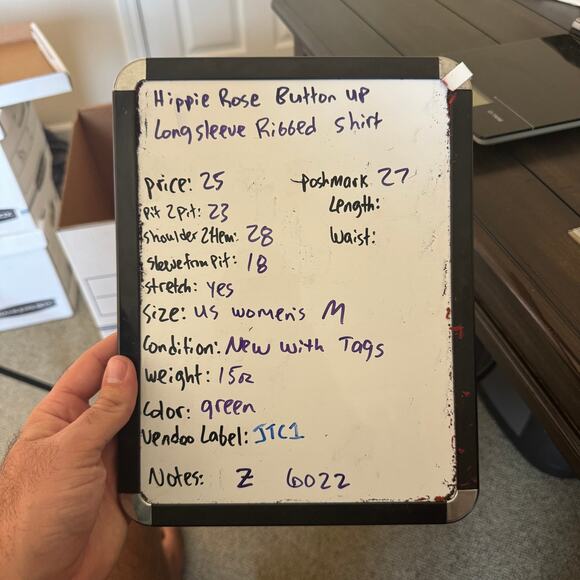 Hippie Rose Button up
Longsleeve Ribbed Shirt
price: 25
Poshmark 27
Pit 2 Pit: 23
Length:
Shoulder 2 Hem: 28
Waist:
Sleeve from Pit: 18
Stretch: yes
Size: US women's M
Condition: New with Tags
weight: 15oz
Color: green
Vendoo Label: JTC1
Notes: Z 6022